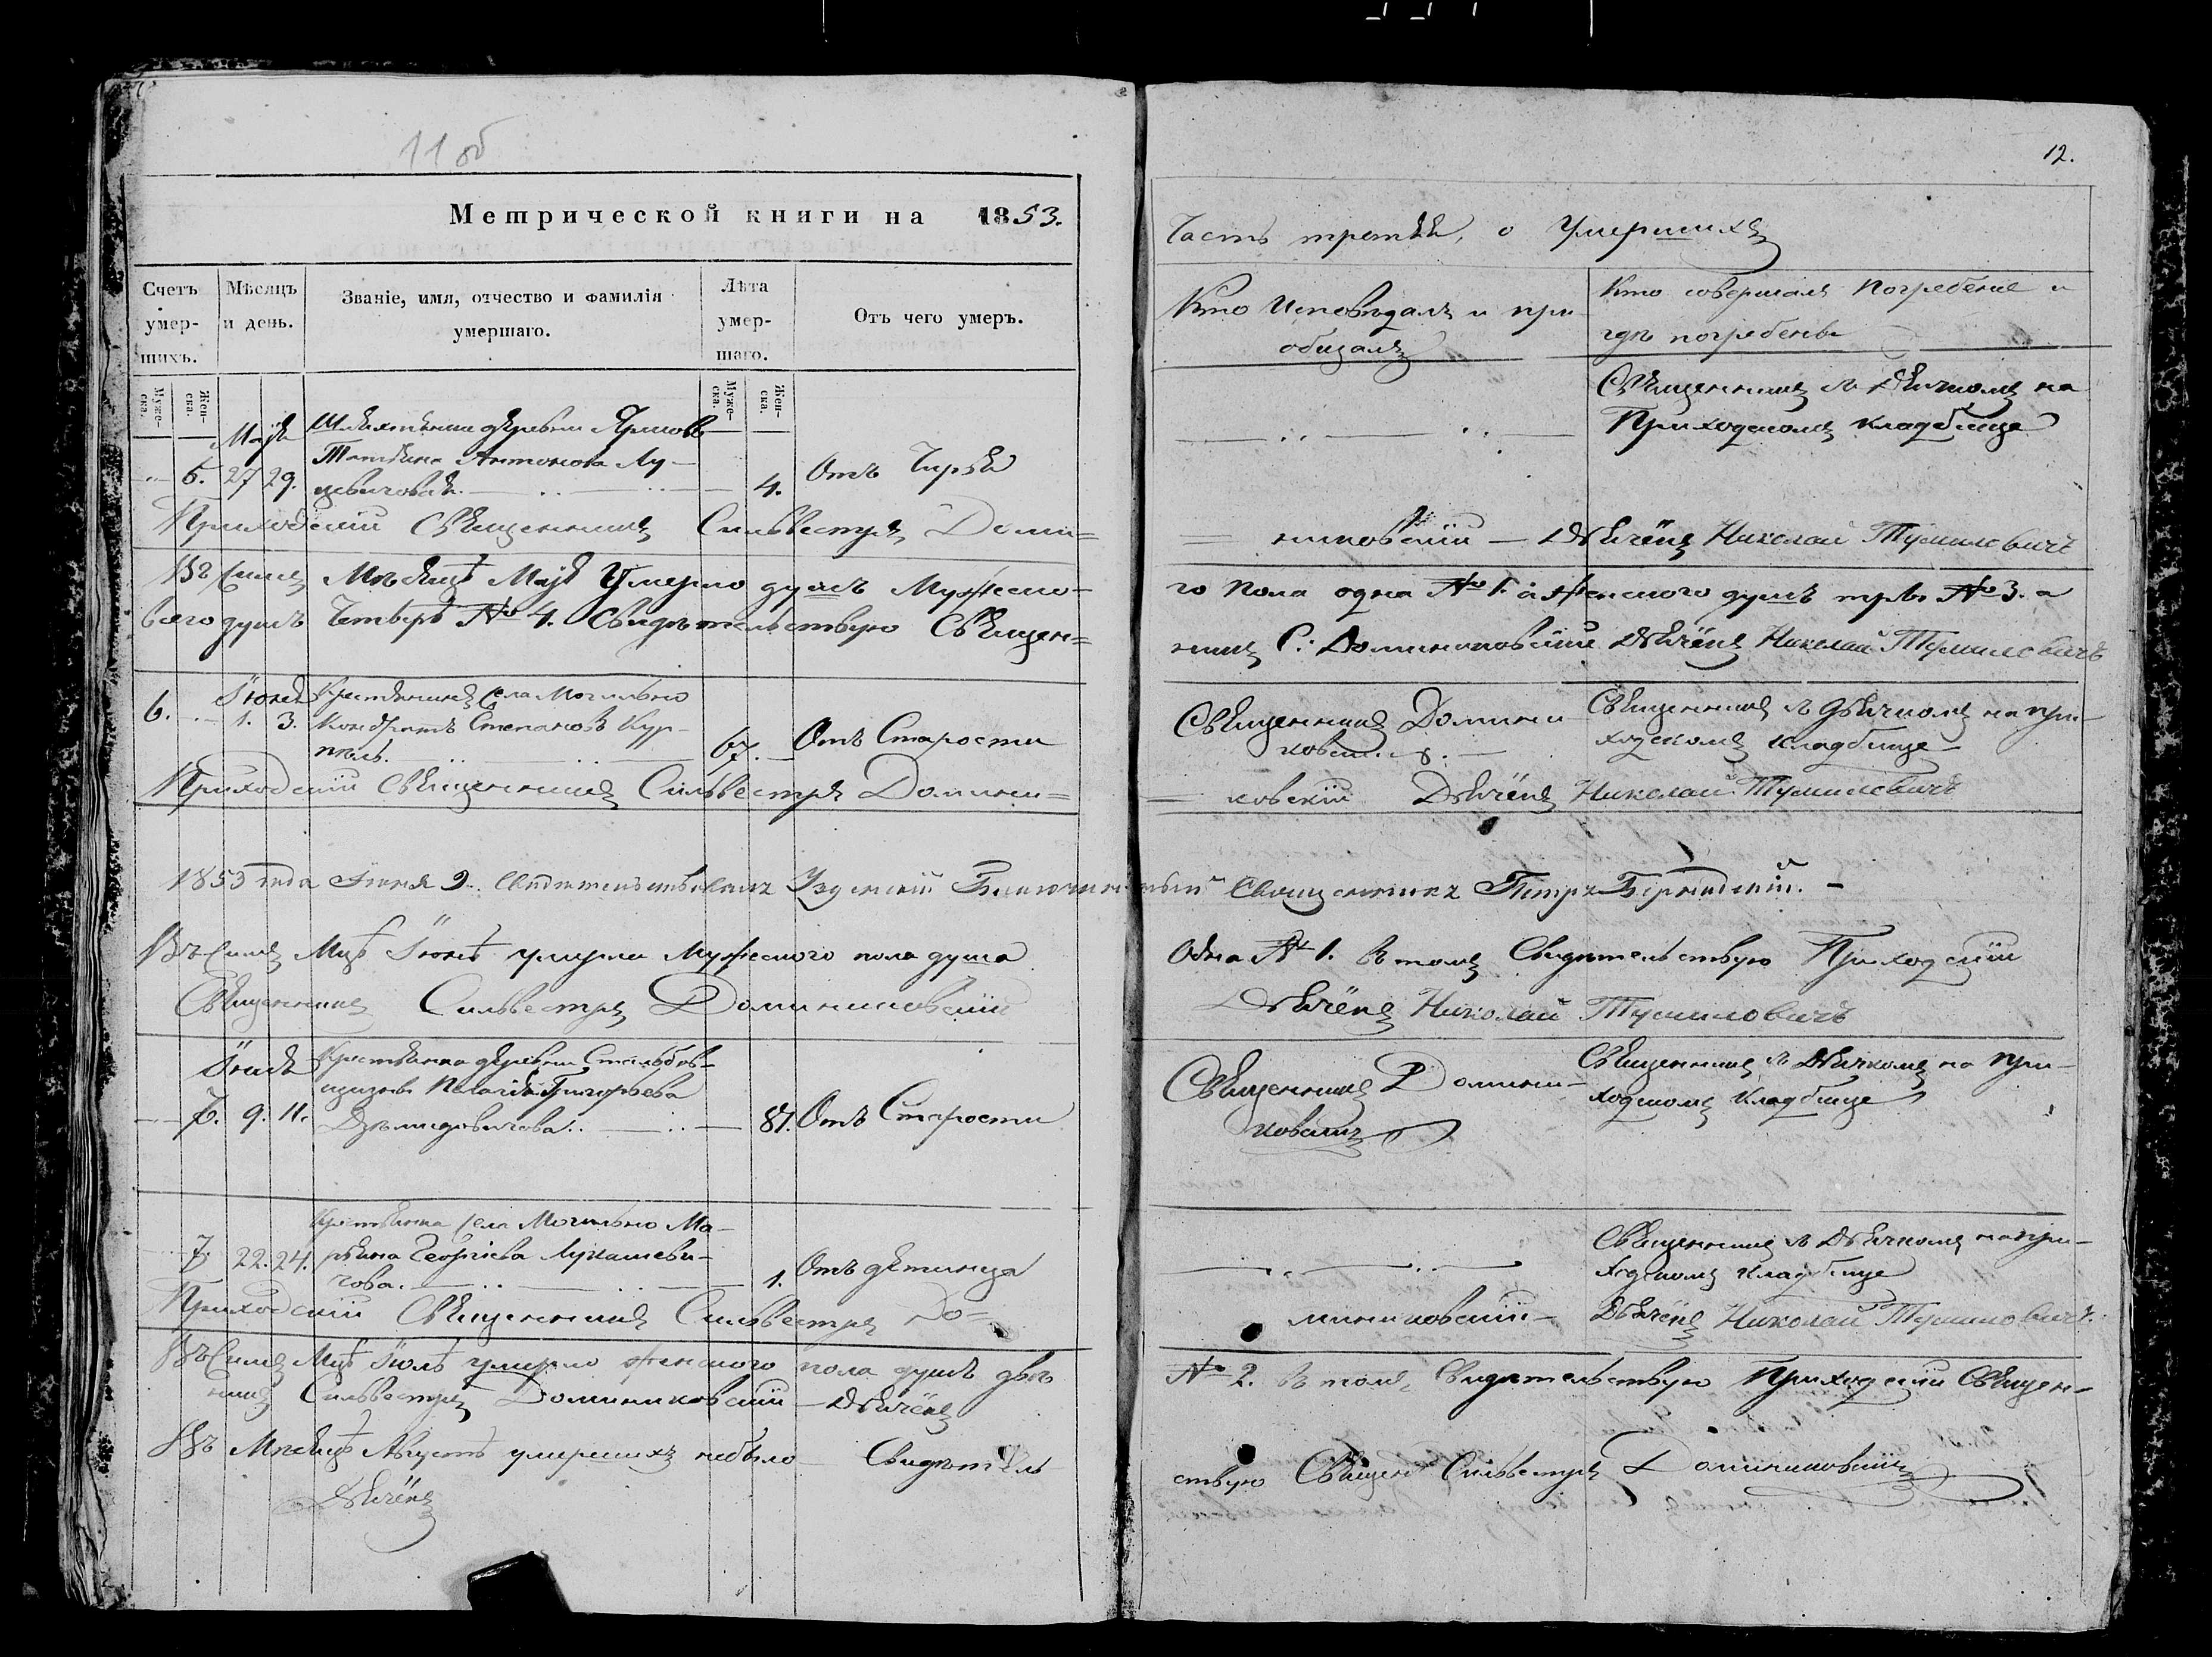 11 об
12.
Метрической книги на 1853.
Часть третья, о Умершихъ
Счетъ умер- шихъ.
Мѣсяцъ и день.
Званіе, имя, отчество и фамилія умершаго.
Лѣта умер- шаго.
Отъ чего умеръ.
Кто Исповѣдалъ и при-
общалъ
Кто совершалъ Погребеніе и
гдѣ погребены
Муже- ска.
Жен- ска.
Муже- ска.
Жен- ска.
Маія
деревни
Татіяна Антонова Лу-
5. 27 29.
цевичова.
4.
Отъ Чирья
Священникъ съ Дьячкомъ на
Приходскомъ кладбище
Приходскій Священникъ Сильвестръ Доми=
= никовскій — Дьячёкъ Николай Тумиловичъ
Въ Семъ Мѣсяцѣ Маіѣ Умерло душъ Мужеско-
го пола одна № 1. а женского душъ три № 3. а
всего душъ Четыре № 4. Свидѣтельствую Священ=
никъ С: Доминиковскій Дьячёкъ Николай Тумиловичъ
Іюня
Крестьянинъ села Могильно
6. 1. 3.
Кондратъ Степановъ Кур-
67.
Отъ Старости
Священникъ Домини
ковскій
Священникъ съ дьячкомъ на при-
ходскомъ кладбище
Приходскій Священникъ Сильвестръ Домини=
= ковскій Дьячёкъ Николай Тумиловичъ
1853 года Іюня 9. Свидетельствовалъ Узденскій Благочинный Священникъ Петръ
Въ Семъ Мцѣ Іюнѣ умерли Мужеского пола душа
Одна № 1. въ томъ Свидѣтельствую Приходскій
Священникъ Сильвестръ Доминиковскій
Дьячёкъ Николай Тумиловичъ
Іюля
Крестьянка деревни
Пелагія Григорьева
9. 11.
81.
Отъ Старости
Священникъ Домини-
ковскій
Священникъ съ Дьячкомъ на при-
ходскомъ Кладбище
Крестьянка села Могильно Ма-
7. 22. 24.
рьяна Георгіева Лукашеви-
чова.
1.
Отъ дѣтинца
Священникъ съ Дьячкомъ на при-
ходскомъ Кладбище
Приходскій Священникъ Сильвестръ До=
миниковскій — Дьячёкъ Николай Тумиловичъ.
Въ Семъ Мцѣ Іюлѣ умерло женского пола душъ двѣ
№ 2. въ томъ Свидѣтельствую Приходскій Священ-
никъ Сильвестръ Доминиковскій — Дьячёкъ
Въ Мѣсяцѣ Августѣ умершихъ небыло Свидѣтель
ствую Священ Сильвестръ Доминиковскій
Дьячёкъ